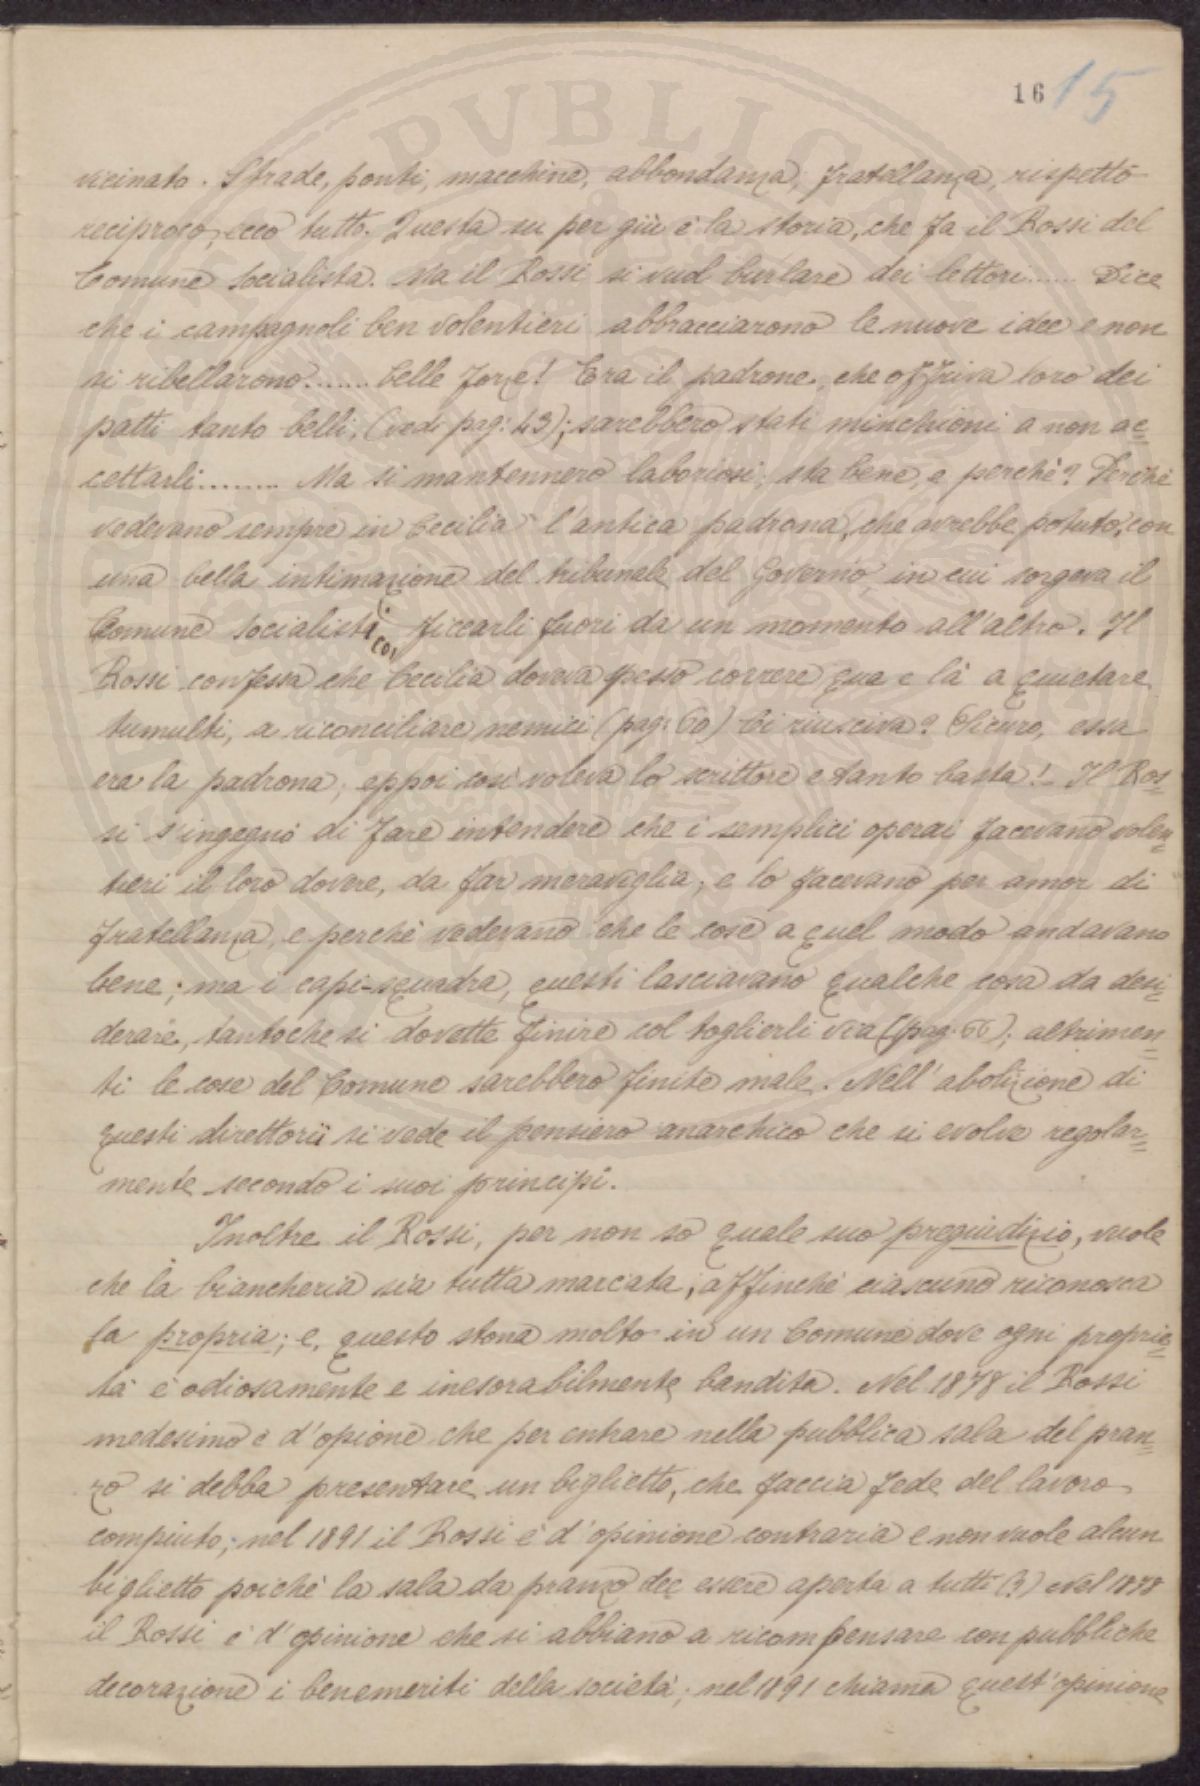 16 15
vicinato. Strade, ponti, macchine, abbondanza, fratellanza, rispetto
reciproco, ecco tutto. Questa su per giù è la storia, che fa il Rossi del
Comune Socialista. Ma il Rossi si vuol burlare dei lettori...... Dice
che i campagnoli ben volentieri abbracciarono le nuove idee e non
si ribellarono....... belle forze! Era il padrone, che offriva loro dei
patti tanto belli, (vedi pag: 43); sarebbero stati minchioni a non ac=
cettarli........ Ma si mantennero laboriosi, sta bene, e perchè? Perchè
vedevano sempre in Cecilia l'antica padrona, che avrebbe potuto, con
una bella intimazione del tribunale del Governo, in cui sorgeva il
Comune socialistico, ficcarli fuori da un momento all'altro. Il
Rossi confessa che Cecilia doveva spesso correre qua e là a quietare
tumulti, a riconciliare nemici (pag: 60) Ci riusciva? Sicuro, essa
era la padrona, eppoi così voleva lo scrittore e tanto basta! - Il Ros=
si s'ingegnò di fare intendere che i semplici operai facevano volen=
tieri il loro dovere, da far meraviglia, e lo facevano per amor di
fratellanza, e perchè vedevano che le cose a quel modo andavano
bene; ma i capi-squadra, questi lasciavano qualche cosa da desi=
derare, tantochè si dovette finire col toglierli via (pag. 66); altrimen=
ti le cose del Comune sarebbero finite male. Nell'abolizione di
questi direttorii si vede il pensiero anarchico che si evolve regolar=
mente secondo i suoi principî.
Inoltre il Rossi, per non so quale suo pregiudizio, vuole
che la biancheria sia tutta marcata, affinchè ciascuno riconosca
la propria; e, questo stona molto in un Comune dove ogni proprie=
tà è odiosamente e inesorabilmente bandita. Nel 1878 il Rossi
medesimo è d'opione che per entrare nella pubblica sala del pran=
zo si debba presentare un biglietto, che faccia fede del lavoro
compiuto; nel 1891 il Rossi è d'opinione contraria e non vuole alcun
biglietto poichè la sala da pranzo dee essere aperta a tutti (?) Nel 1878
il Rossi è d'opinione che si abbiano a ricompensare con pubbliche
decorazione i benemeriti della società; nel 1891 chiama quest'opinione